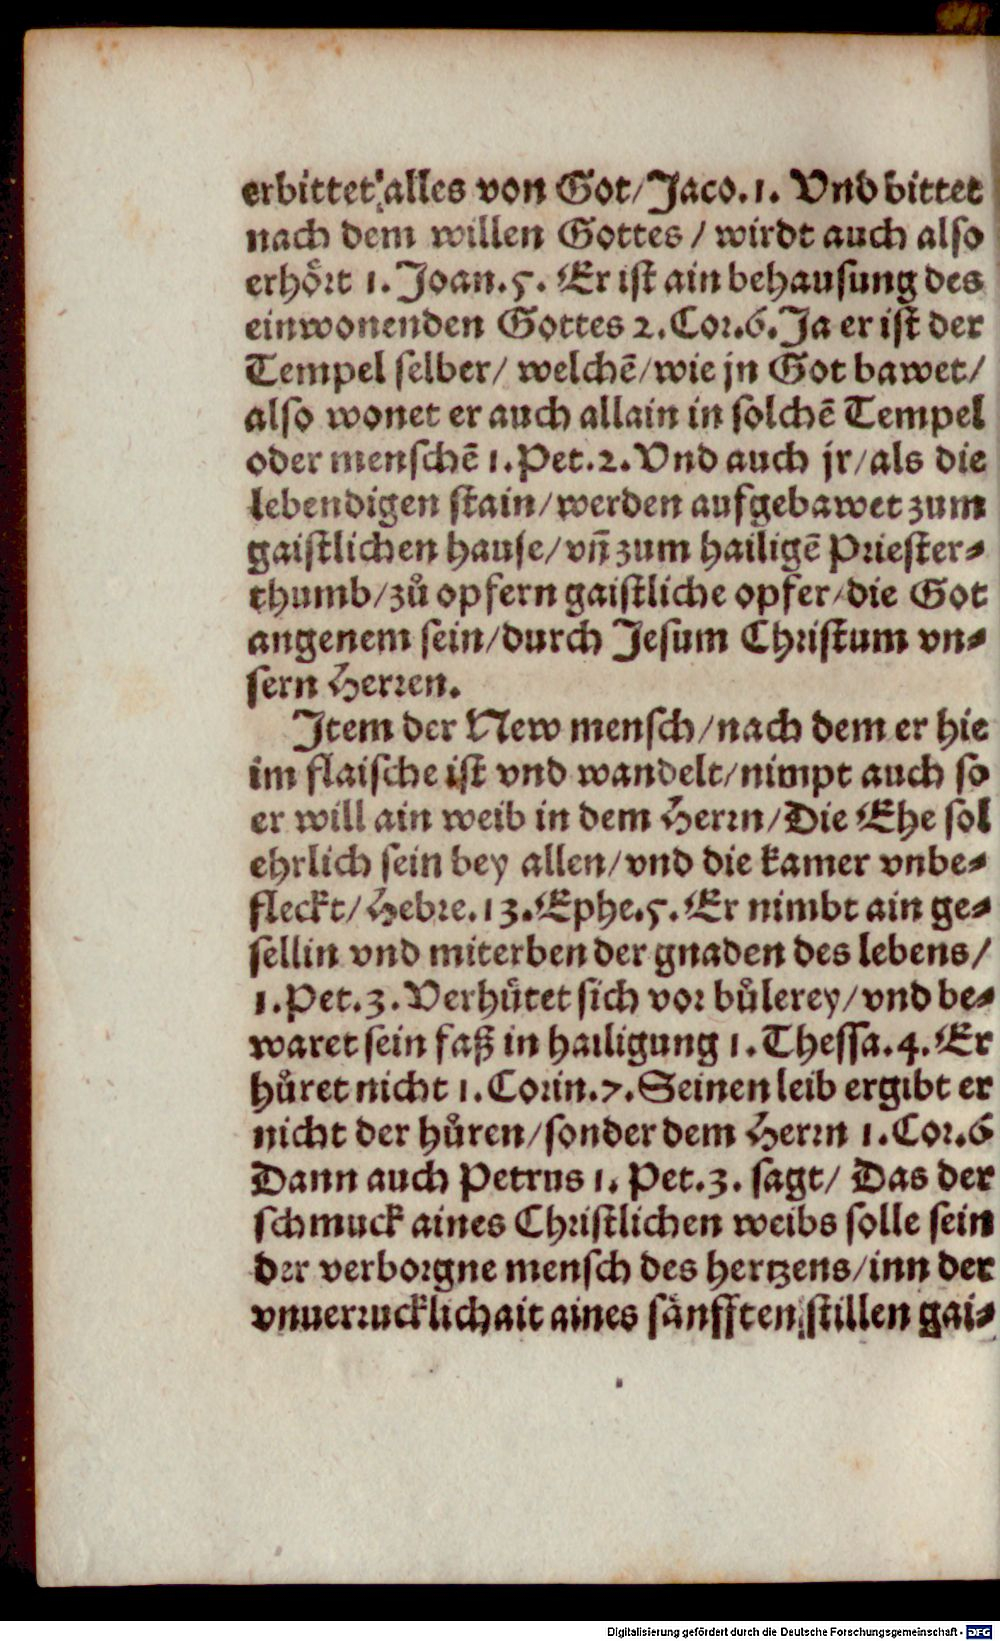 erbittet alles von Got/Jaco.1. Vnd bittet
nach dem willen Gottes / wirdt auch also
erhoͤrt 1. Joan.5. Er ist ain behausung des
einwonenden Gottes 2.Cor.6.Ja er ist der
Tempel selber/ welchē/wie jn Got bawet/
also wonet er auch allain in solchē Tempel
oder menschē 1.Pet.2.Vnd auch jr/als die
lebendigen stain/werden aufgebawet zum
gaistlichen hause/vn̄ zum hailigē Priester-
thumb/zů opfern gaistliche opfer/die Got
angenem sein/durch Jesum Christum vn-
sern Herren.
Jtem der New mensch/nach dem er hie
im flaische ist vnd wandelt/nimpt auch so
er will ain weib in dem Herrn/Die Ehe sol
ehrlich sein bey allen/vnd die kamer vnbe-
fleckt/Hebre.13.Ephe.5.Er nimbt ain ge-
sellin vnd miterben der gnaden des lebens/
1.Pet.3.Verhuͤtet sich vor bůlerey/vnd be-
waret sein faß in hailigung 1.Thessa.4.Er
hůret nicht 1.Corin.7.Seinen leib ergibt er
nicht der hůren/sonder dem Herrn 1.Cor.6
Dann auch Petrus 1. Pet.3. sagt/ Das der
schmuck aines Christlichen weibs solle sein
der verborgne mensch des hertzens/inn der
vnuerrucklichait aines saͤnfften stillen gai-
Digitalisierung gefördert durch die Deutsche Forschungsgemeinschaft - DFG